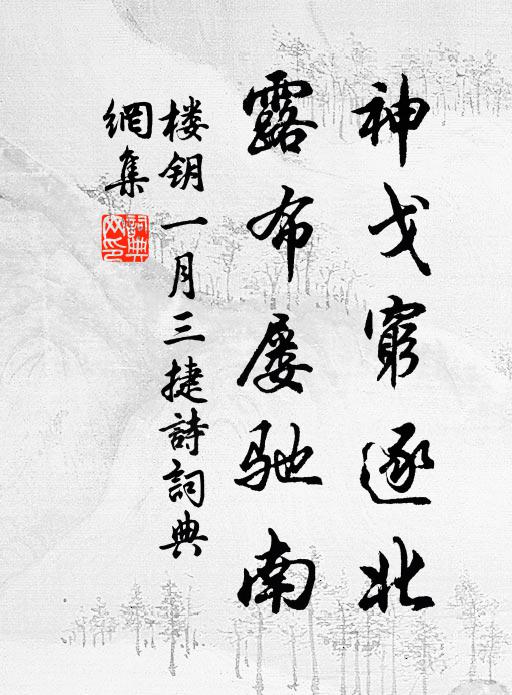 神戈窮逐北
露布屡驰南
楼钥一月三捷詩詞典
網集
詞典
网印